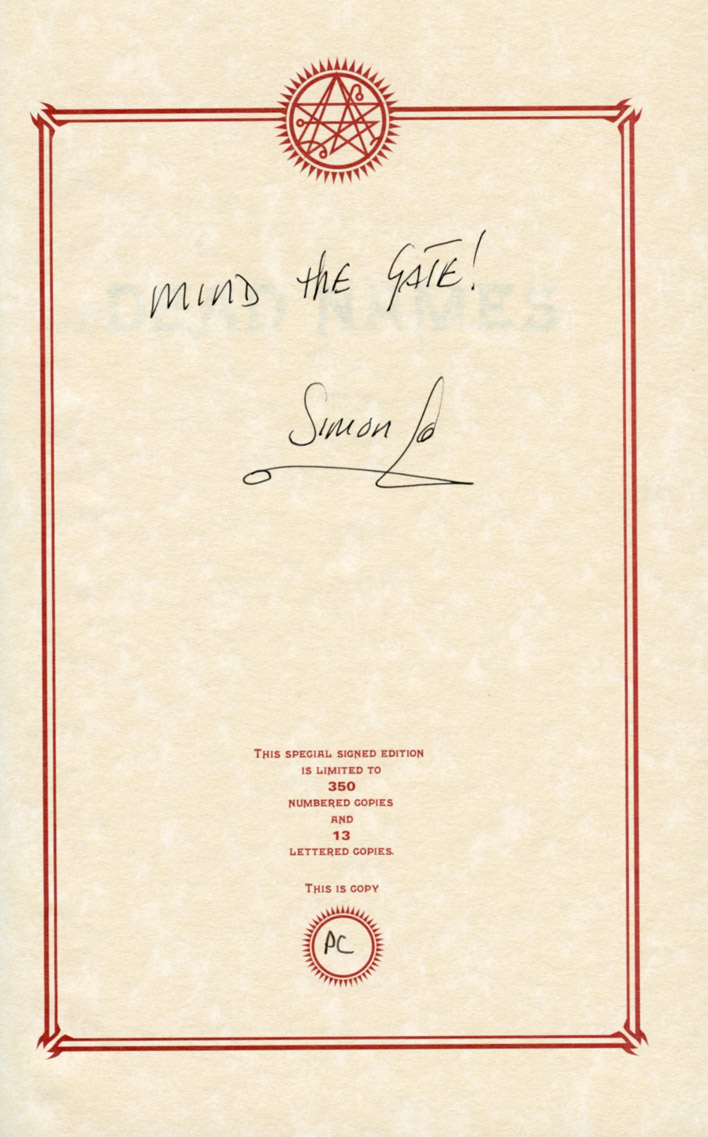 MIND thE GATE!
DEAD NAMES
Simon
THIS SPECIAL SIGNED EDITION
IS LIMITED TO
350
NUMBERED COPIES
AND
13
LETTERED COPIES.
THIS IS COPY
PC